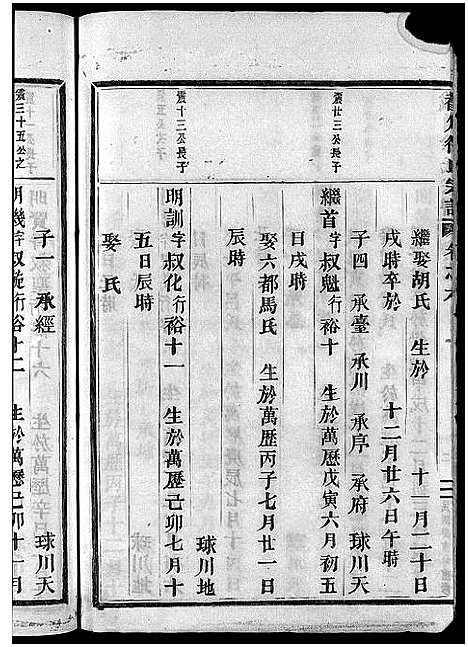 繼娶胡氏 生於 十一月二十日
戌時卒於 十二月廿六日午時
子四 承臺 承川 承序 承府 球川天
震廿三公長子
繼首字叔魁行裕十 生於萬歷戊寅六月初五
日戌時
娶六都馬氏 生於萬歷丙子七月廿一日
辰時 球川地
震十三公長子
明訓字叔化行裕十一 生於萬歷己卯七月十
五日辰時
娶 氏
子一 承經 球川天
震三十五公之
明幾字叔 行裕十二 生於萬歷己卯十一月